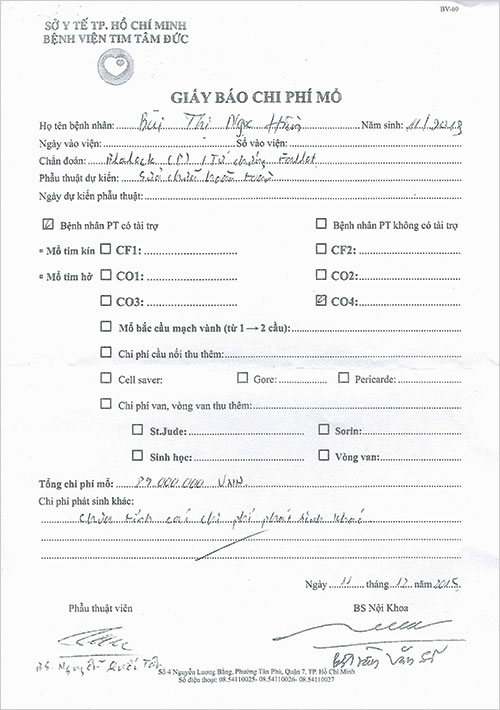 BV-60
SỞ Y TẾ TP. HỒ CHÍ MINH
BỆNH VIỆN TIM TÂM ĐỨC
GIẤY BÁO CHI PHÍ MỔ
Họ tên bệnh nhân: Bùi Thị Ngọc Hân Năm sinh: 11/2013
Ngày vào viện: Số vào viện:
Chẩn đoán: Blalock (P) / Tứ chứng Fallot
Phẫu thuật dự kiến: Sửa chữa hoàn toàn
Ngày dự kiến phẫu thuật:
Bệnh nhân PT có tài trợ Bệnh nhân PT không có tài trợ
Mổ tim kín CF1: CF2:
Mổ tim hở CO1: CO2:
CO3: CO4:
Mổ bắc cầu mạch vành (từ 1 → 2 cầu):
Chi phí cầu nối thu thêm:
Cell saver: Gore: Pericarde:
Chi phí van, vòng van thu thêm:
St.Jude: Sorin:
Sinh học: Vòng van:
Tổng chi phí mổ: 89.000.000 VNN
Chi phí phát sinh khác:
Chưa tính các chi phí phát sinh khác
Ngày 11 tháng 12 năm 2015
Phẫu thuật viên BS Nội Khoa
BS. Nguyễn BS Trần Văn Sĩ
Số 4 Nguyễn Lương Bằng, Phường Tân Phú, Quận 7, TP. Hồ Chí Minh
Số điện thoại: 08.54110025- 08.54110026- 08.54110027